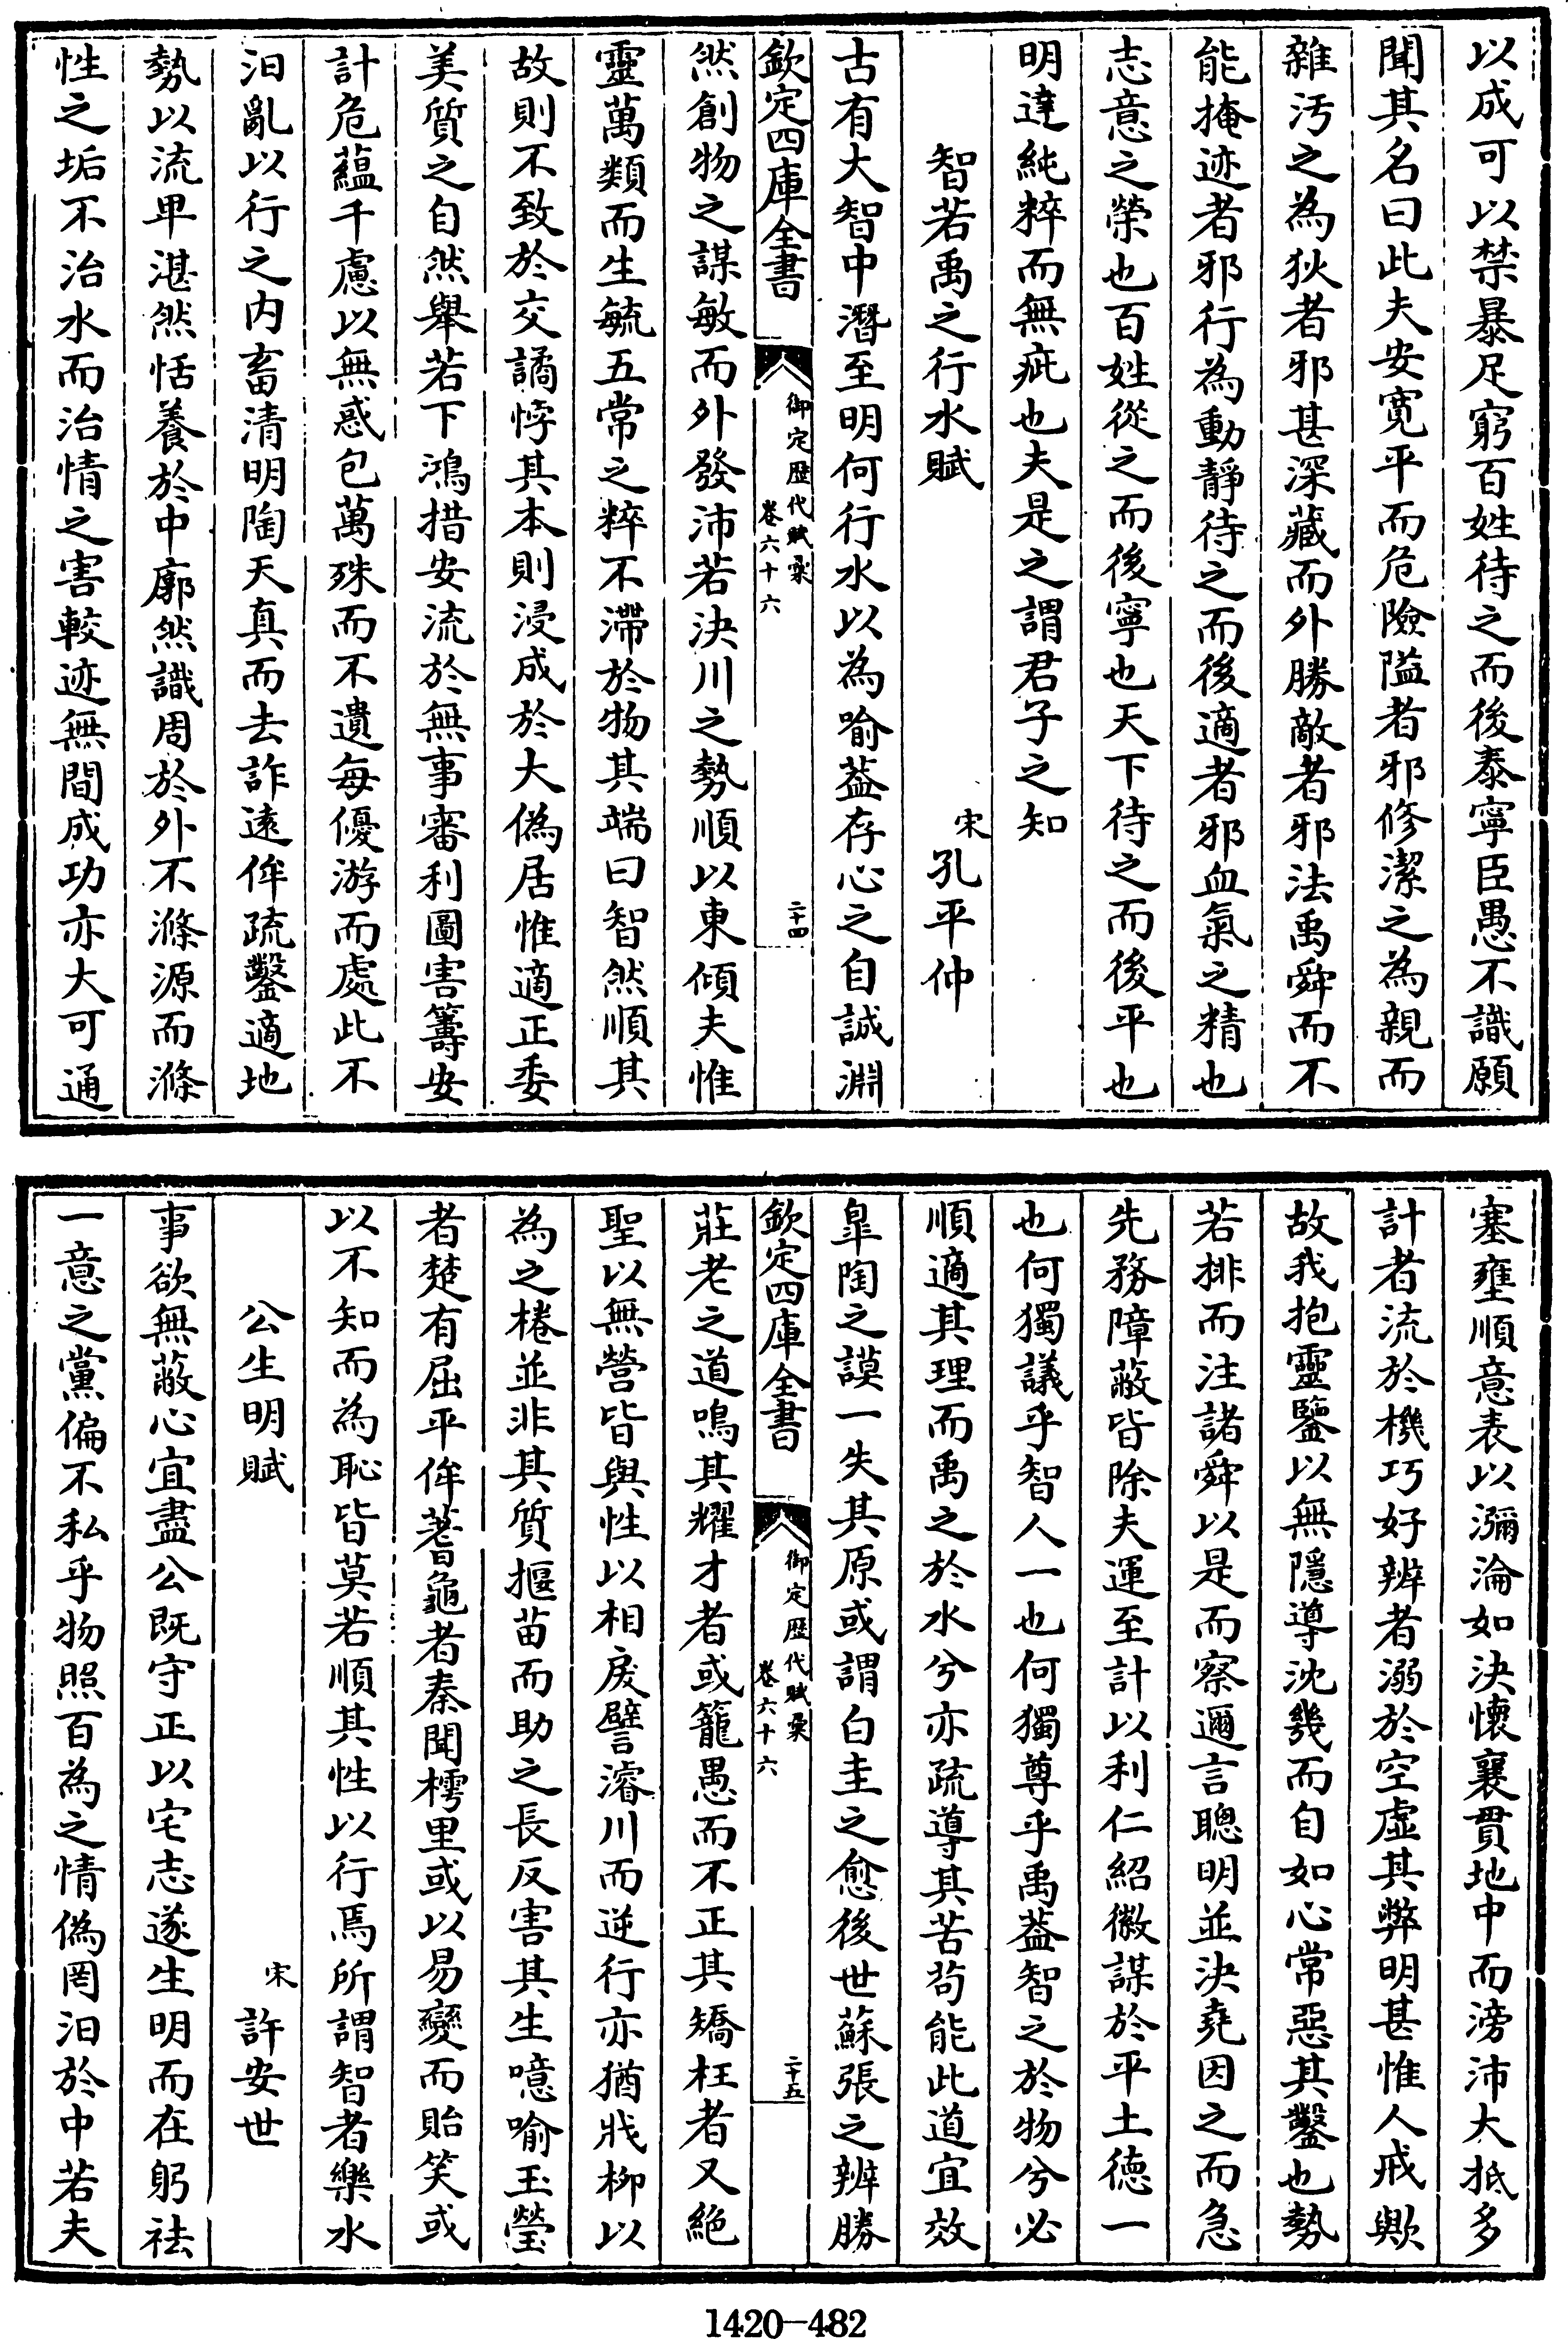 以成可以禁暴足窮百姓待之而後泰寧臣愚不識願
聞其名曰此夫安寛平而危險隘者邪修潔之為親而
雜汚之為狄者邪甚深藏而外勝敵者邪法禹舜而不
能掩迹者邪行為動靜待之而後適者邪血氣之精也
志意之榮也百姓從之而後寧也天下待之而後平也
明達純粹而無疵也夫是之謂君子之知
智若禹之行水賦 宋孔平仲
古有大智中潛至明何行水以為喻葢存心之自誠淵
欽定四庫全書 御定歴代賦彙 卷六十六 二十四
然創物之謀敏而外發沛若決川之勢順以東傾夫惟
靈萬類而生毓五常之粹不滯於物其端曰智然順其
故則不致於交譎悖其本則浸成於大偽居惟適正委
美質之自然舉若下鴻措安流於無事審利圖害籌安
計危蘊千慮以無惑包萬殊而不遺每優游而處此不
汨亂以行之内畜清明陶天真而去詐遠侔疏鑿適地
勢以流卑湛然恬養於中廓然識周於外不滌源而滌
性之垢不治水而治情之害較迹無間成功亦大可通
塞壅順意表以瀰淪如決懷襄貫地中而滂沛大抵多
計者流於機巧好辨者溺於空虛其弊明甚惟人戒歟
故我抱靈鑒以無隱導沈幾而自如心常惡其鑿也勢
若排而注諸舜以是而察邇言聰明並決堯因之而急
先務障蔽皆除夫運至計以利仁紹徽謀於平土德一
也何獨議乎智人一也何獨尊乎禹葢智之於物兮必
順適其理而禹之於水兮亦疏導其苦茍能此道宜效
臯陶之謨一失其原或謂白圭之愈後世蘇張之辨勝
欽定四庫全書 御定歴代賦彙 卷六十六 二十五
莊老之道鳴其耀才者或籠愚而不正其矯枉者又絶
聖以無營皆與性以相戾譬濬川而逆行亦猶戕柳以
為之棬並非其質揠苗而助之長反害其生噫喻玉瑩
者楚有屈平侔蓍龜者秦聞樗里或以易變而貽笑或
以不知而為恥皆莫若順其性以行焉所謂智者樂水
公生明賦 宋許安世
事欲無蔽心宜盡公既守正以宅志遂生明而在躬祛
一意之黨偏不私乎物照百為之情偽罔汨於中若夫
1420—482